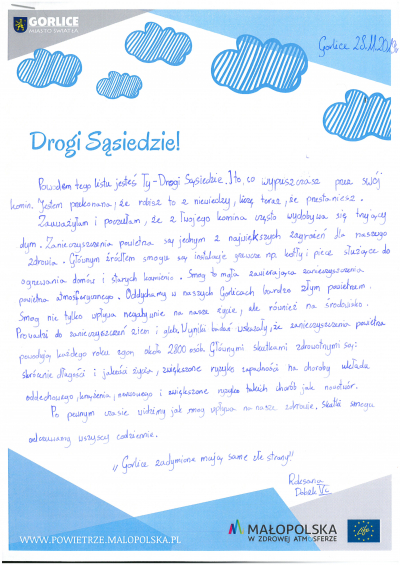 GORLICE
MIASTO ŚWIATŁA
Gorlice 28.11.2023
Drogi Sąsiedzie!
Powodem tego listu jesteś Ty - Drogi Sąsiedzie. I to, co wypuszczasz przez swój
komin. Jestem przekonana, że robisz to z niewiedzy, liczę teraz, że przestaniesz.
Zauważyłam i poczułam, że z Twojego komina często wydobywa się trujący
dym. Zanieczyszczenia powietrza są jednym z największych zagrożeń dla naszego
zdrowia. Głównym źródłem smogu są instalacje grzewcze np. kotły i piece służące do
ogrzewania domów i starych kamienic. Smog to mgła zawierająca zanieczyszczenia
powietrza atmosferycznego. Oddychamy w naszych Gorlicach bardzo złym powietrzem.
Smog nie tylko wpływa negatywnie na nasze życie, ale również na środowisko.
Prowadzi do zanieczyszczeń ziem i gleb. Wyniki badań wskazały, że zanieczyszczenia powietrza
powodują każdego roku zgon około 2800 osób. Głównymi skutkami zdrowotnymi są:
skrócenie długości i jakości życia, zwiększone ryzyko zapadalności na choroby układu
oddechowego, krążenia, nerwowego i zwiększone ryzyko takich chorób jak nowotwór.
Po pewnym czasie widzimy jak smog wpływa na nasze zdrowie. Skutki smogu
odczuwamy wszyscy codziennie.
,,Gorlice zadymione mają same złe strony"
WWW.POWIETRZE.MALOPOLSKA.PL
MAŁOPOLSKA
W ZDROWEJ ATMOSFERZE